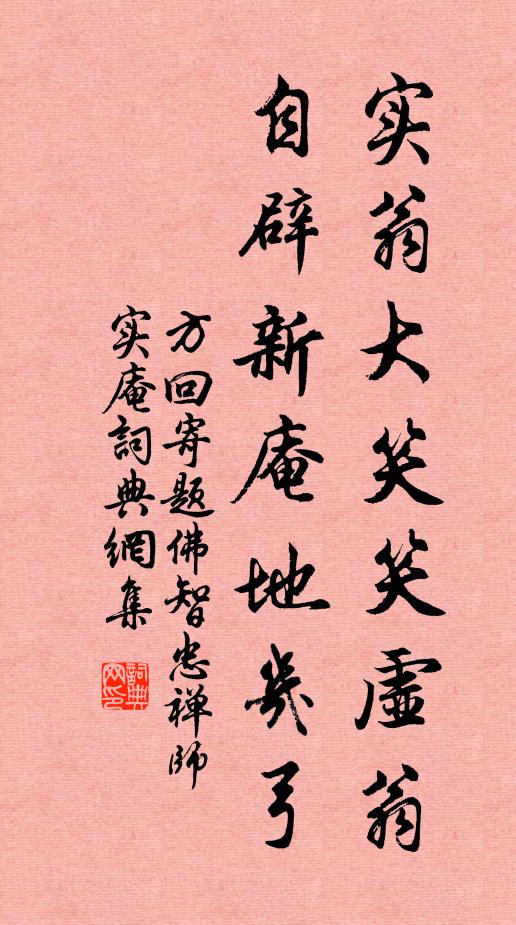 实翁大笑笑虚翁
自辟新庵地几弓
方回寄题佛智忠禅师
实庵詞典網集
詞典网印